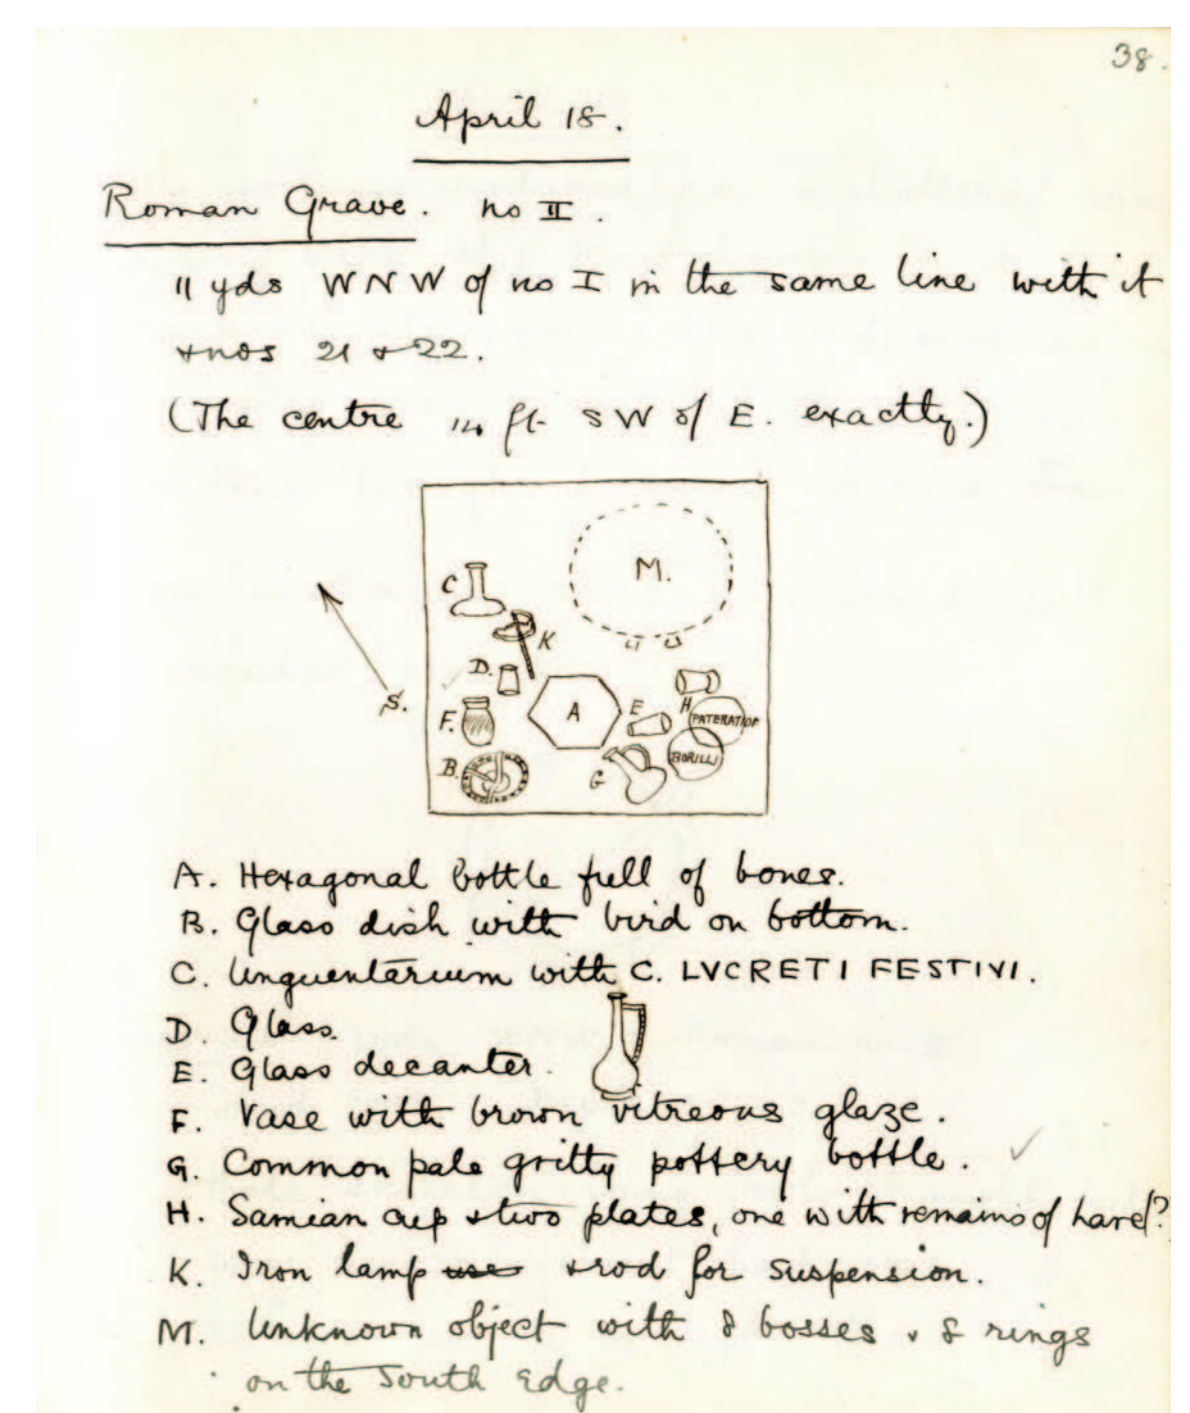 38.
April 18.
Roman Grave. no II.
11 yds WNW of no I in the same line with it
& nos 21 & 22.
(The centre 14 ft. SW of E. exactly.)
M.
C
K
D.
S.
F.
A
E
H
PATERATIOF
BORILLI
B.
G
A. Hexagonal bottle full of bones.
B. Glass dish with bird on bottom.
C. Unguentarium with C. LVCRETI FESTIVI.
D. Glass.
E. Glass decanter.
F. Vase with brown vitreous glaze.
G. Common pale gritty pottery bottle.
H. Samian cup & two plates, one with remains of hare?
K. Iron lamp use & rod for suspension.
M. Unknown object with 8 bosses & 8 rings
on the South Edge.